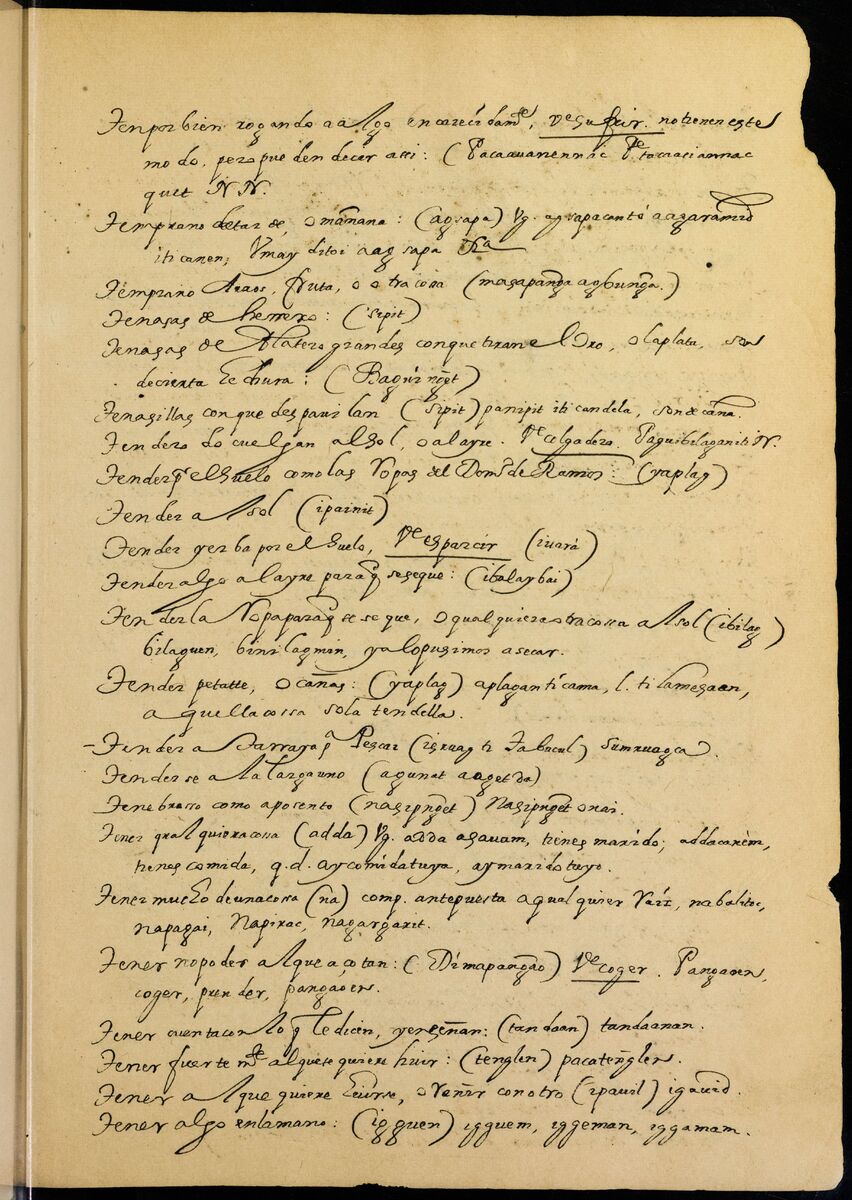 Ten por bien rogando a algo encarecidamte, Ve sufrir. no tienen este
modo, pero pueden decir assi: (
quet NN.
Temprano de tarde, o mañana: (agsapa) Vg. agsapacanto
iti canen, Vmay ditoi a agsapa
Temprano fruta, o otra cossa (masapanga agbunga.)
Tenasas de herrero: (sipit)
Tenasas de Platero grandes con que tiran el Oro, o la plata, son
de cierta hechura: (Baguinget)
Tenasillas con que despauilan (sipit) panipit iti candela, son de caña.
Tendero do cuelgan al Sol, o al ayre. Ve colgadero. Paguibilaganiti N.
Tender pr el suelo como las Ropas del Domo de Ramos: (yaplag)
Tender al sol (ipainit)
Tender yerba por el suelo, Ve esparcir (iuará)
Tender algo al ayre para q se seque: (ibalaybai)
Tender la Ropa para q se seque, o qualquiera otra cossa al sol (ibilag)
bilaguen, binilagmin, ya lo pusimos a secar.
Tender petatte, o cañas: (yaplag) aplagantí cama, l. ti lamesaen,
aquella cossa sola tendella.
Tender atarraya pa Pescar (isruag ti Tabucul) Sumruagca.
Tenderse a la larga uno (agunat aagetda)
Tenebrosso como aposento (nasipnget) Nasipnget onai.
Tener qualquiera cossa (adda) Vg. adda asauam, tienes marido; addacanèm,
tienes comida, q.d. ay comida tuya, ay marido tuyo.
Tener mucho de una cossa (na) comp. antepuesta a qualquier raiz, nabalitoc,
napagai, Napirac, nagargarit.
Tener no poder al que açotan: (Dimapangáo) Ve coger. Pangaoen,
coger, prender, pangáoen.
Tener cuenta con lo q le dicen, y enseñan: (tandaan) tandaanan.
Tener fuertemte al que se quiere huir: (tenglen) pacatenglen.
Tener al que quiere huirse, o reñir con otro (ipauil) igauid.
Tener algo en la mano: (igguen) igguem, iggeman, iggamam.